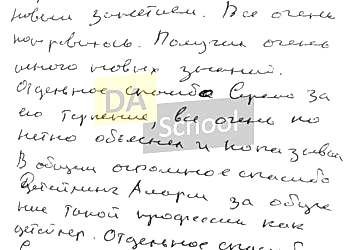 новым занятием. Все очень
понравилось. Получил очень
много новых знаний.
Отдельное спасибо Сергею за
его терпение, все очень по
нятно объяснял и показывал
В общем огромное спасибо
Детейлинг Аларм за обуче
ние такой профессии как
детейлер. Отдельное спасиб
DA
School